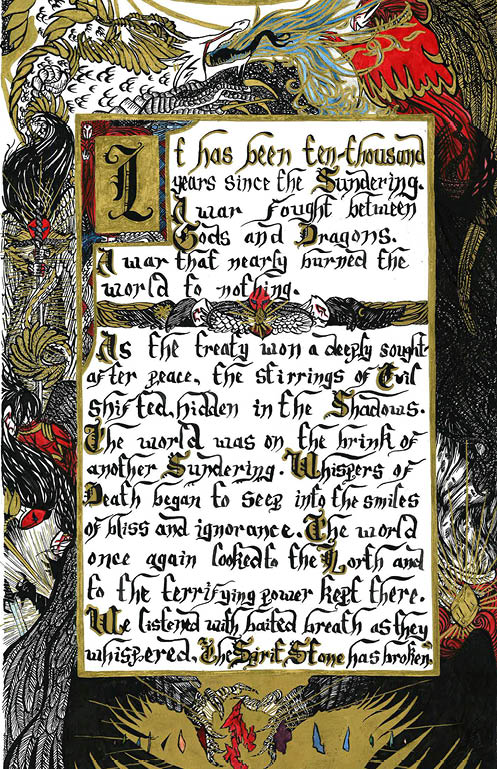 It has been ten-thousand
years since the Sundering.
A war fought between
Gods and Dragons.
A war that nearly burned the
world to nothing.
As the treaty won a deeply sought-
after peace, the stirrings of Evil
shifted, hidden in the Shadows.
The world was on the brink of
another Sundering. Whispers of
Death began to seep into the smiles
of bliss and ignorance. The world
once again looked to the North and
to the terrifying power kept there.
We listened with baited breath as they
whispered, The Spirit Stone has broken.